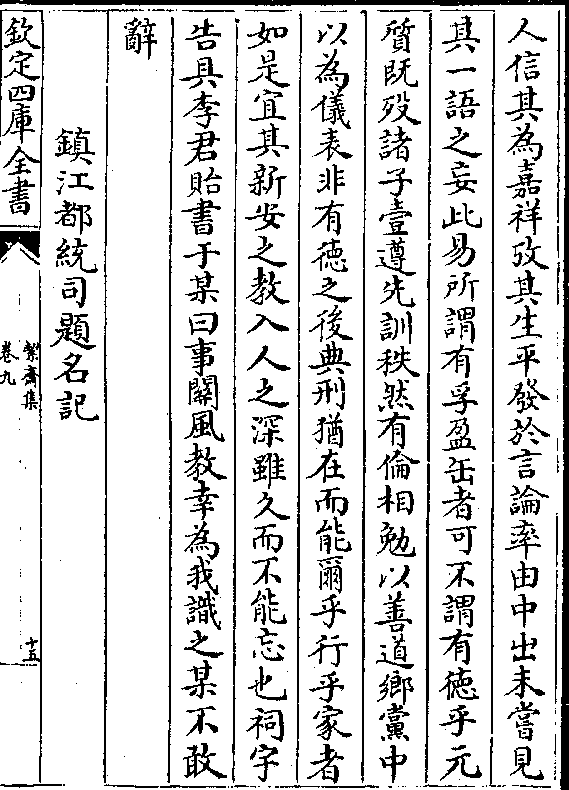 人信其為嘉祥攷其生平發於言論率由中出未嘗見
其一語之妄此易所謂有孚盈缶者可不謂有徳乎元
質既歿諸子壹遵先訓秩然有倫相勉以善道鄉黨中
以為儀表非有徳之後典刑猶在而能爾乎行乎家者
如是宜其新安之教入人之深雖久而不能忘也祠宇
告具李君貽書于某曰事關風教幸為我識之某不敢
辭
鎮江都統司題名記
欽定四庫全書
絜齋集
卷九
十五